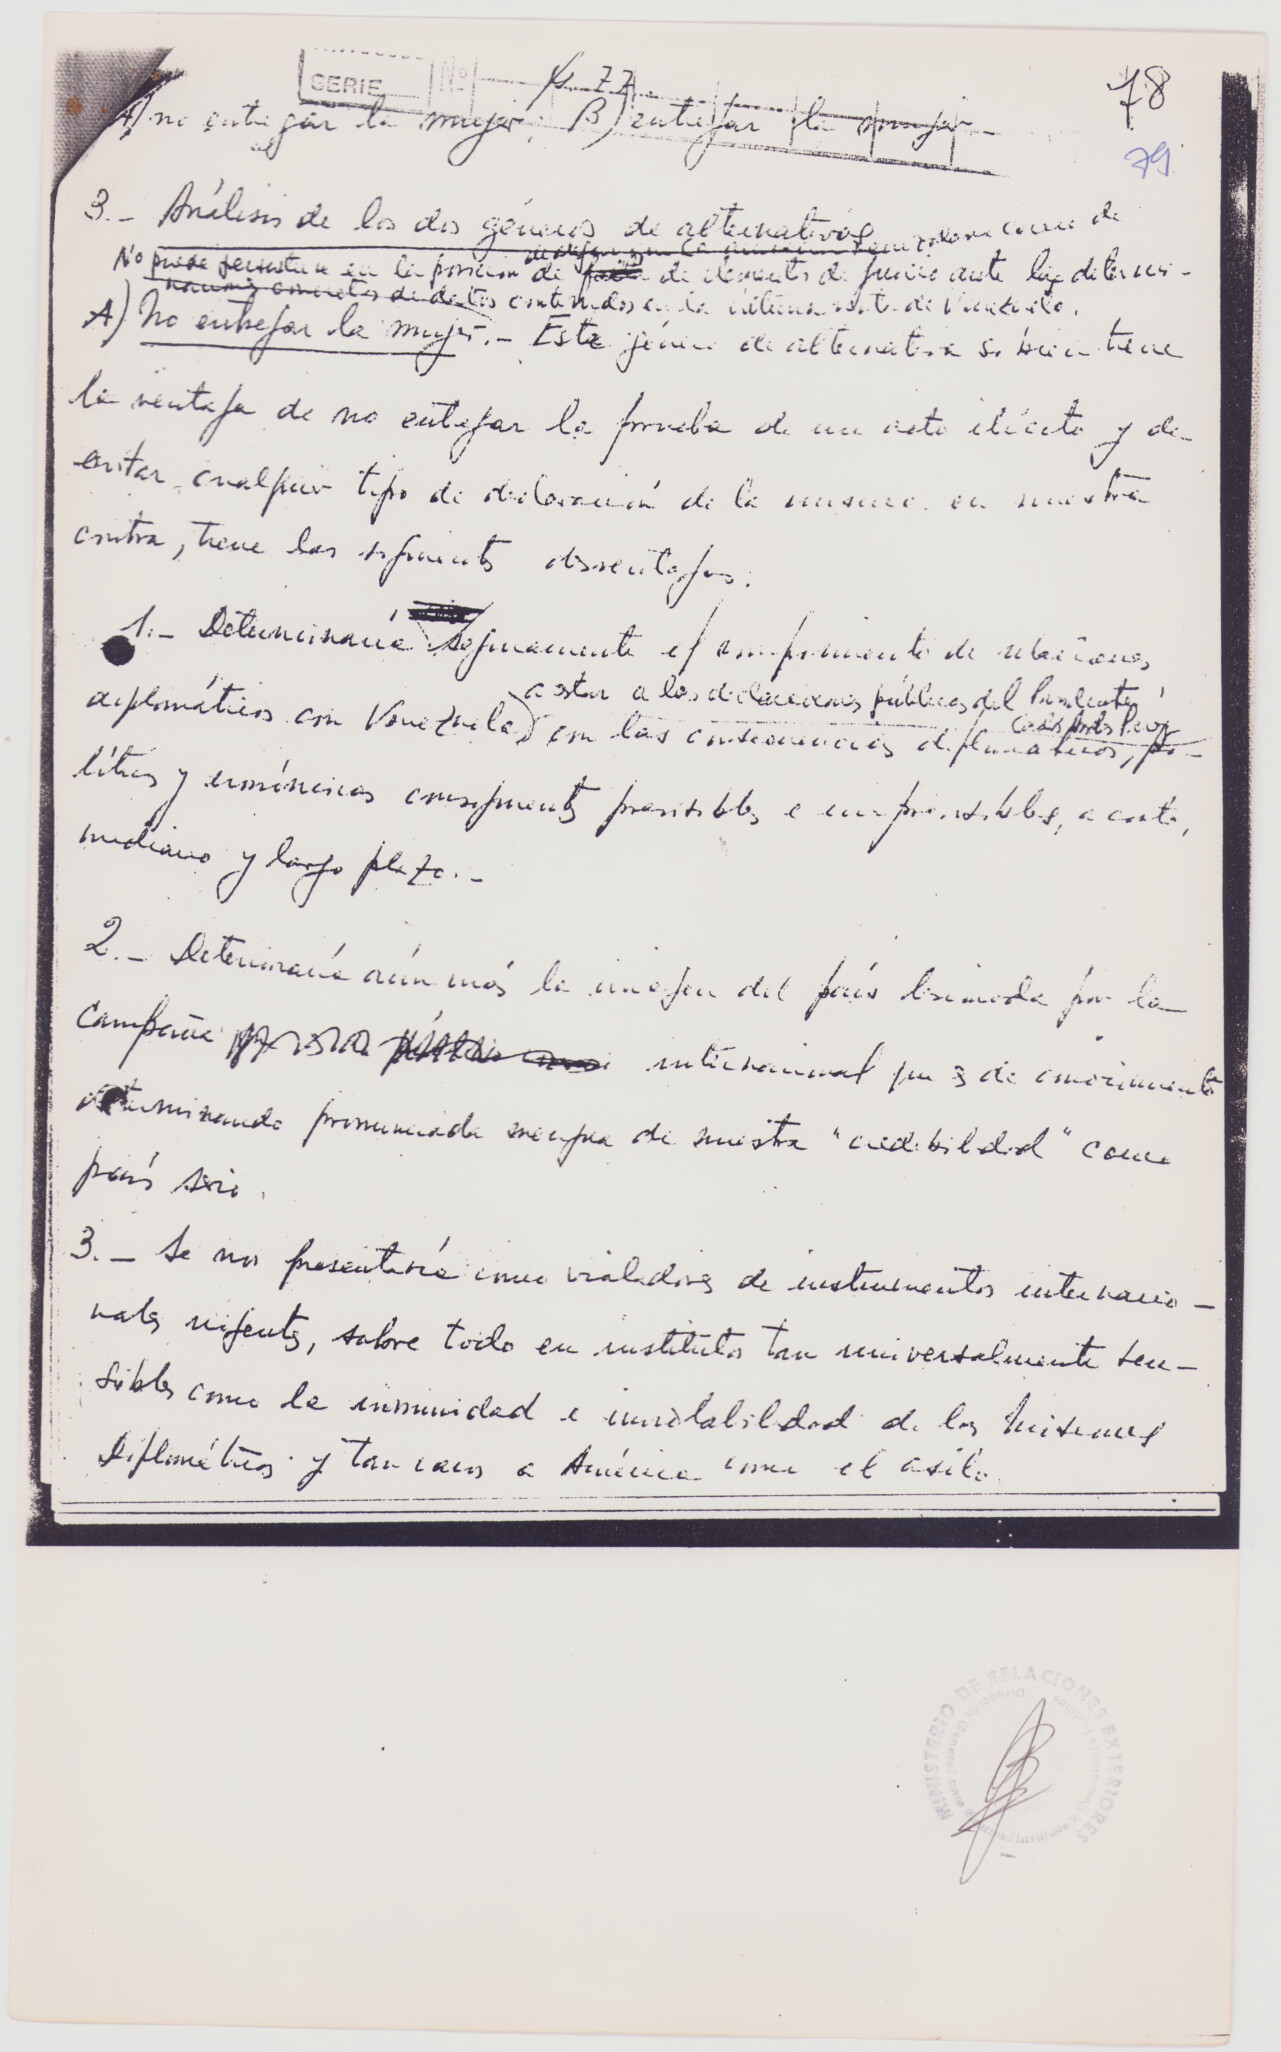 SERIE Nº
fs. 77
78
79
A) no entregar la mujer; B) entregar la mujer.-
3.- Análisis de los dos géneros de alternativas
venezolana como de
No puede persistirse en la posición de de elementos de juicio ante las determi-
naciones concretas de datos contenidos en la última nota de Venezuela.
A) No entregar la mujer.- Este género de alternativa si bien tiene
la ventaja de no entregar la prueba de un acto ilícito y de
evitar cualquier tipo de declaración de la misma en nuestra
contra, tiene las siguientes desventajas:
1.- Determinaría seguramente el rompimiento de relaciones
a estar a las declaraciones públicas del Presidente
Carlos Andrés Pérez
diplomáticas con Venezuela, con las consecuencias diplomáticas, po-
líticas y económicas consiguientes previsibles e imprevisibles, a corto,
mediano y largo plazo.-
2.- Deterioraría aún más la imagen del país lesionada por la
campaña internacional que es de conocimiento
determinando pronunciada mengua de nuestra "credibilidad" como
país serio.
3.- Se nos presentaría como violadores de instrumentos internacio-
nales vigentes, sobre todo en institutos tan universalmente sen-
sibles como la inmunidad e inviolabilidad de las Misiones
Diplomáticas y tan caros a América como el asilo.
MINISTERIO DE RELACIONES EXTERIORES